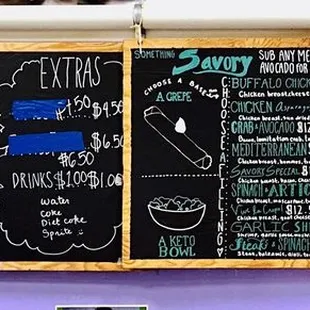 EXTRAS
$1.50 $4.50
$6.50
$6.50
DRINKS $1.00 $1.0
water
coke
Diet coke
Sprite
SOMETHING Savory
SUB ANY ME
AVOCADO FOR
CHOOSE A BASE
A CREPE
A KETO
BOWL
CHOOSE A FILLING
BUFFALO CHICK
Chicken breast, cheese
CHICKEN Asparag
Chicken breast,
CRAB + AVOCADO $12
MEDITERRANEAN
Chicken breast, hummus,
SAVORY SPECIAL $
SPINACH + ARTIC
Chicken breast,
$12.
Chicken breast,
GARLIC SH
Shrimp, garlic
Steak & SPINACH
Steak, balsamic,